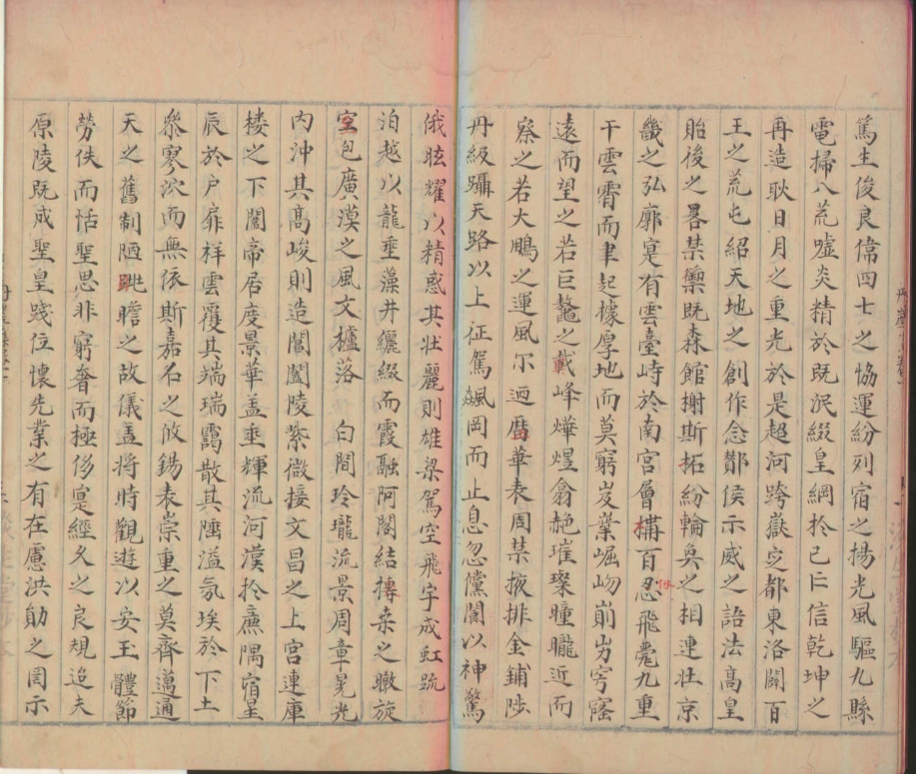 篤生俊良偉四七之恊運紛列宿之揚光風驅九縣
電掃八荒噓炎精於既泯綴皇綱於已亡信乾坤之
再造耿日月之重光於是超河跨嶽定都東洛闢百
王之荒屯紹天地之創作念酇侯示威之語法高皇
貽後之畧禁籞既森館榭斯拓紛輪奐之相連壮京
畿之弘廓寔有雲臺峙於南宮層構百忍飛甍九重
干雲霄而聿起據厚地而莫窮岌嶪崛岉崱屴穹窿
遠而望之若巨鰲之戴峰燁煜翕赩璀璨曈曨近而
察之若大鵬之運風尔迺曆華表周禁掖排金鋪陟
丹級躡天路以上征駕飆岡而止息忽儻閬以神驚
俄眩耀以精惑其状麗則雄梁駕空飛宇成虹䟽
泊越以龍垂藻井纚綴而霞融阿閣結摶桑之暾旋
室包廣漠之風文櫨落 白間玲瓏流景周章晃光
内沖其高峻則造閶闔陵紫微接文昌之上宮連庫
楼之下閣帝居度景華盖垂輝流河漢扵廡隅宿星
辰於户扉祥雲覆其端瑞靄散其陲溢氛埃於下土
叅寥泬而無依斯嘉名之攸錫表崇重之莫齊邁通
天之舊制陋 眺瞻之故儀盖将時觀遊以安玉體節
勞佚而恬聖思非窮奢而極侈寔經久之良規迨夫
原陵既成聖皇踐位懷先業之有在慮洪勛之罔示